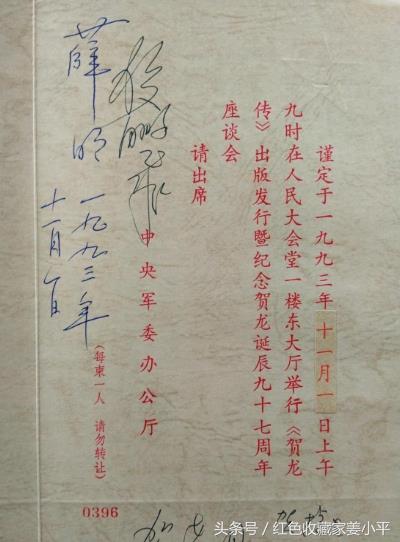 谨定于一九九三年十一月一日上午
九时在人民大会堂一楼东大厅举行《贺龙
传》出版发行暨纪念贺龙诞辰九十七周年
座谈会
请出席
中央军委办公厅
（每柬一人 请勿转让）
0396
薛明
一九九三年
十一月一日
头条号/红色收藏家姜小平